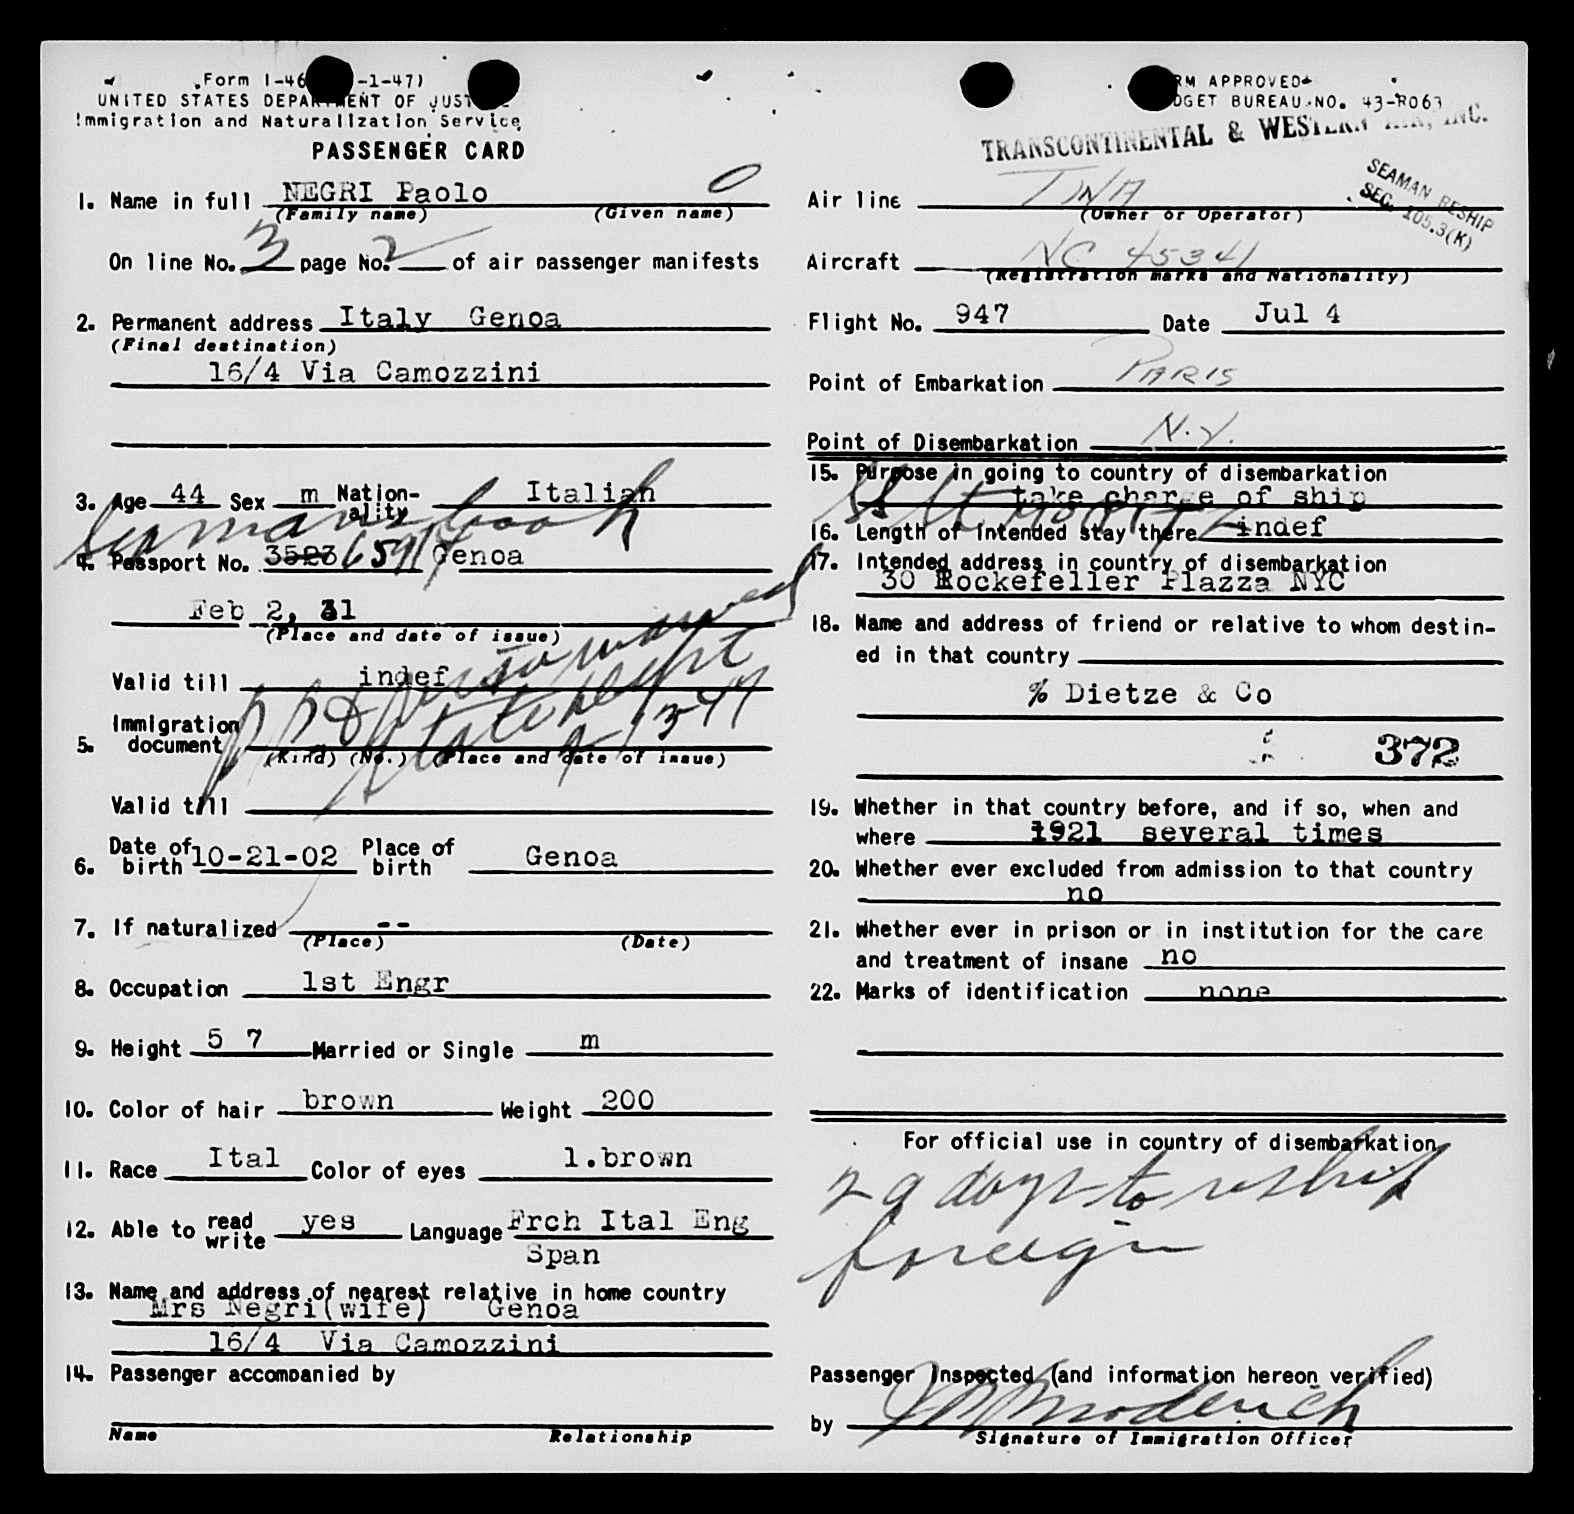 Form I-46 -1-47)
UNITED STATES DEPARTMENT OF JUSTICE
Immigration and Naturalization Service
PASSENGER CARD
1. Name in full NEGRI Paolo
(Family name) (Given name)
On line No. 3 page No. 2 of air passenger manifests
2. Permanent address Italy Genoa
(Final destination)
16/4 Via Camozzini
3. Age 44 Sex m Nation-ality Italian
Seaman's book
4. Passport No. 3523 65914 Genoa
Feb 2, 31
(Place and date of issue)
Valid till indef
5. Immigration document
(Kind) (No.) (Place and date of issue)
Valid till
6. Date of birth 10-21-02 Place of birth Genoa
7. If naturalized --
(Place) (Date)
8. Occupation 1st Engr
9. Height 5 7 Married or Single m
10. Color of hair brown Weight 200
11. Race Ital Color of eyes l.brown
12. Able to read write yes Language Frch Ital Eng
Span
13. Name and address of nearest relative in home country
Mrs Negri(wife) Genoa
16/4 Via Camozzini
14. Passenger accompanied by
Name Relationship
FORM APPROVED
BUDGET BUREAU NO. 43-R063
TRANSCONTINENTAL & WESTERN AIR, INC.
SEAMAN RESHIP
SEC. 105.3(K)
Air line TWA
(Owner or Operator)
Aircraft NC 45341
(Registration marks and Nationality)
Flight No. 947 Date Jul 4
Point of Embarkation PARIS
Point of Disembarkation N.Y.
15. Purpose in going to country of disembarkation
take charge of ship
16. Length of intended stay there indef
17. Intended address in country of disembarkation
30 Rockefeller Plazza NYC
18. Name and address of friend or relative to whom destin-
ed in that country
% Dietze & Co
372
19. Whether in that country before, and if so, when and
where 1921 several times
20. Whether ever excluded from admission to that country
no
21. Whether ever in prison or in institution for the care
and treatment of insane no
22. Marks of identification none
For official use in country of disembarkation
29 days to reship
foreign
Passenger Inspected (and information hereon verified)
by
Signature of Immigration Officer